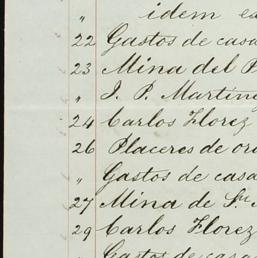 " idem
22 Gastos de casa
23 Mina del
" J. P. Martine
24 Carlos Florez
26 Placeres de oro
" Gastos de casa
27 Mina de Sn
29 Carlos Florez
Gastos de casa